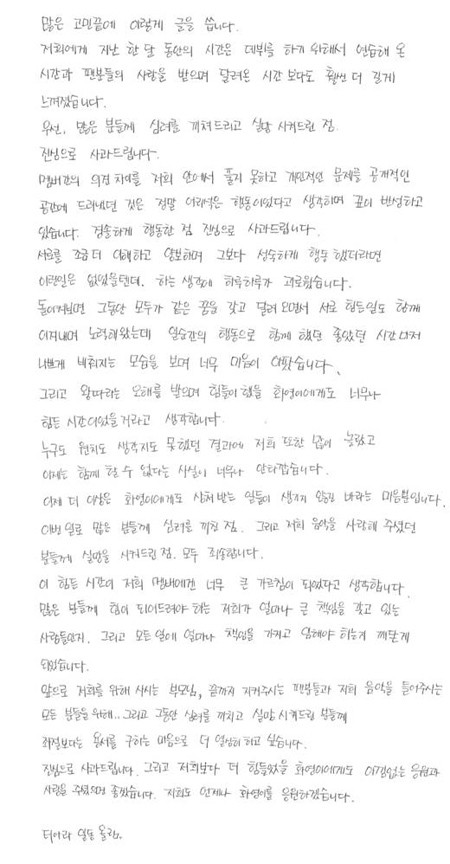 많은 고민끝에 이렇게 글을 씁니다.
저희에게 지난 한 달 동안의 시간은 데뷔를 하기 위해서 연습해 온
시간과 팬분들의 사랑을 받으며 달려온 시간 보다도 훨씬 더 길게
느껴졌습니다.
우선, 많은 분들께 심려를 끼쳐드리고 실망 시켜드린 점.
진심으로 사과드립니다.
멤버간의 의견 차이를 저희 안에서 풀지 못하고 개인적인 문제를 공개적인
공간에 드러냈던 것은 정말 어리석은 행동이었다고 생각하며 깊이 반성하고
있습니다. 경솔하게 행동한 점 진심으로 사과드립니다.
서로를 조금 더 이해하고 양보하며 그보다 성숙하게 행동 했더라면
이런일은 없었을텐데. 하는 생각에 하루하루가 괴로웠습니다.
돌이켜보면 그동안 모두가 같은 꿈을 갖고 달려 오면서 서로 힘든일도 함께
이겨내며 노력해왔는데 일순간의 행동으로 함께 했던 좋았던 시간 마저
나쁘게 비춰지는 모습을 보며 너무 마음이 아팠습니다.
그리고 왕따라는 오해를 받으며 힘들어 했을 화영이에게도 너무나
힘든 시간이었을거라고 생각합니다.
누구도 원치도 생각지도 못했던 결과에 저희 또한 많이 놀랐고
이제는 함께 할 수 없다는 사실이 너무나 안타깝습니다.
이제 더 이상은 화영이에게도 상처 받는 일들이 생기지 않길 바라는 마음뿐입니다.
이번 일로 많은 분들께 심려를 끼친 점. 그리고 저희 음악을 사랑해 주셨던
분들께 실망을 시켜드린 점. 모두 죄송합니다.
이 힘든 시간이 저희 멤버에겐 너무 큰 가르침이 되었다고 생각합니다.
많은 분들께 힘이 되어드려야 하는 저희가 얼마나 큰 책임을 갖고 있는
사람들인지. 그리고 모든 일에 얼마나 책임을 가지고 임해야 하는지 깨닫게
되었습니다.
앞으로 저희를 위해 사시는 부모님, 끝까지 지켜주시는 팬분들과 저희 음악을 들어주시는
모든 분들을 위해.. 그리고 그동안 심려를 끼치고 실망 시켜드린 분들께
좌절보다는 용서를 구하는 마음으로 더 열심히 하고 싶습니다.
진심으로 사과드립니다. 그리고 저희보다 더 힘들었을 화영이에게도 아낌없는 응원과
사랑을 주셨으면 좋겠습니다. 저희도 언제나 화영이를 응원하겠습니다.
티아라 일동 올림.